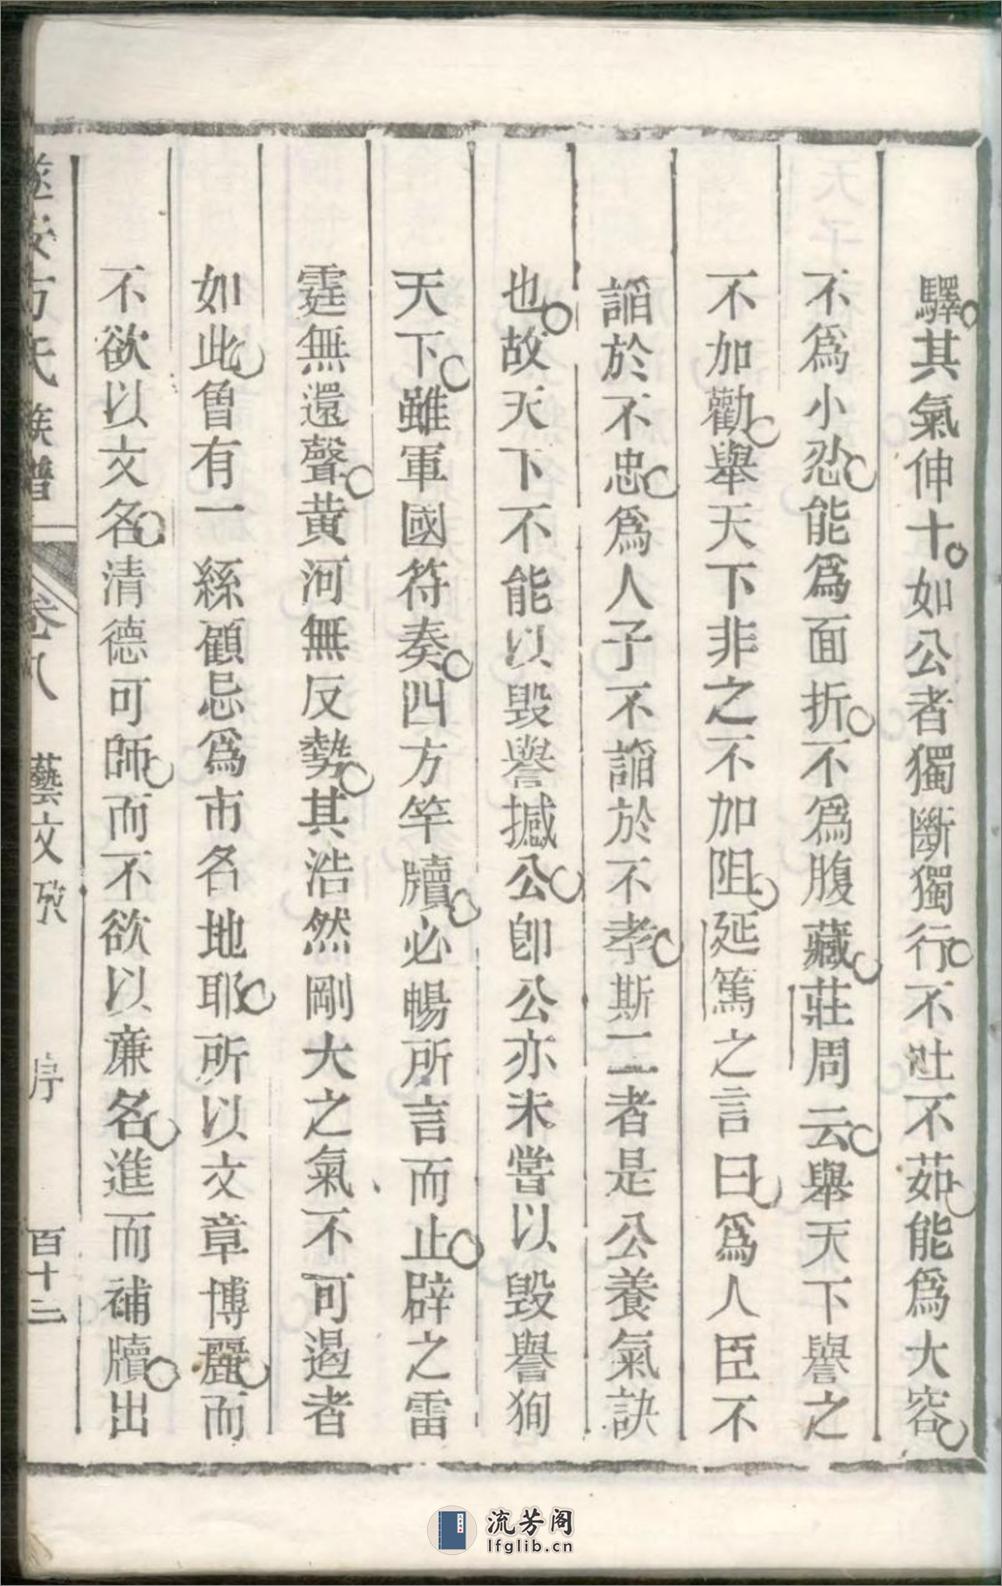 驛其氣伸十如公者獨斷獨行不吐不茹能爲大容
不爲小忍能爲面折不爲腹藏莊周云舉天下譽之
不加勸舉天下非之不加阻延篤之言曰爲人臣不
謟於不忠爲人子不謟於不孝斯二者是公養氣訣
也故天下不能以毀譽撼公卽公亦未嘗以毀譽狥
天下雖軍國符奏四方竿牘必暢所言而止辟之雷
霆無還聲黃河無反勢其浩然剛大之氣不可遏者
如此曾有一絲顧忌爲市名地耶所以文章博麗而
不欲以文名清德可師而不欲以亷名進而補牘出
遂安方氏族譜 卷八 藝文攷 序 百十二
流芳阁
lfglib.cn